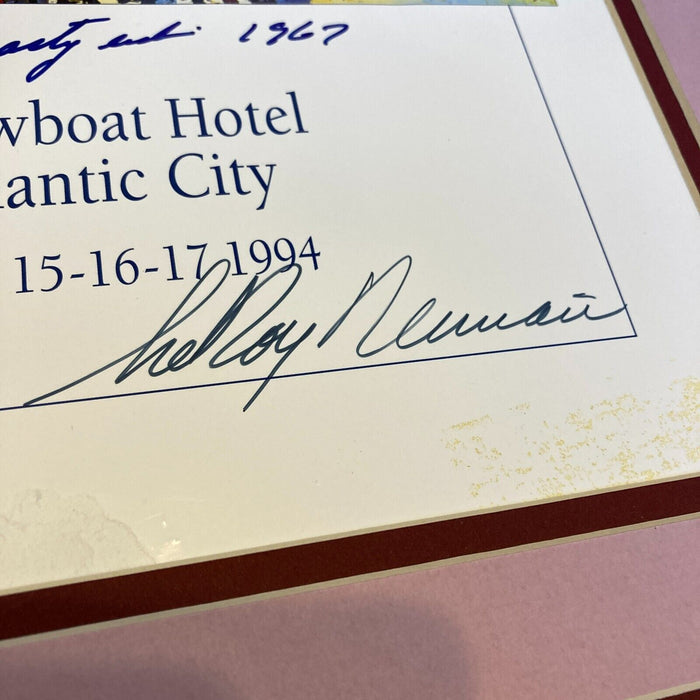 1967
wboat Hotel
lantic City
15-16-17 1994
LeRoy Neiman